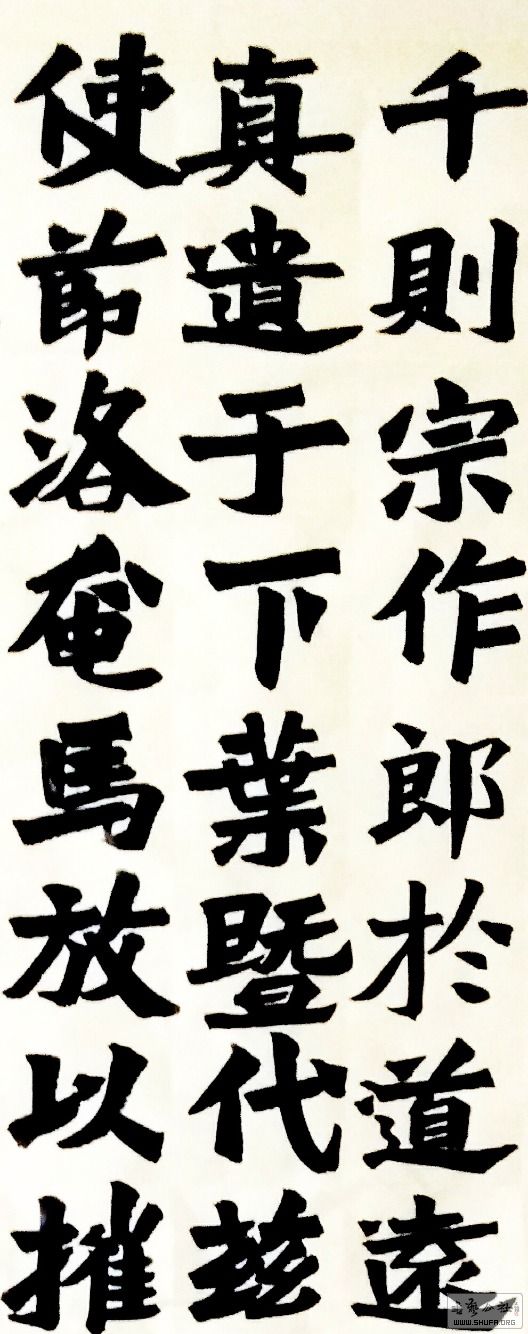 千則宗作郎於道遠
真遺于下葉暨代茲
使節洛奄馬放以摧
WWW.SHUFA.ORG